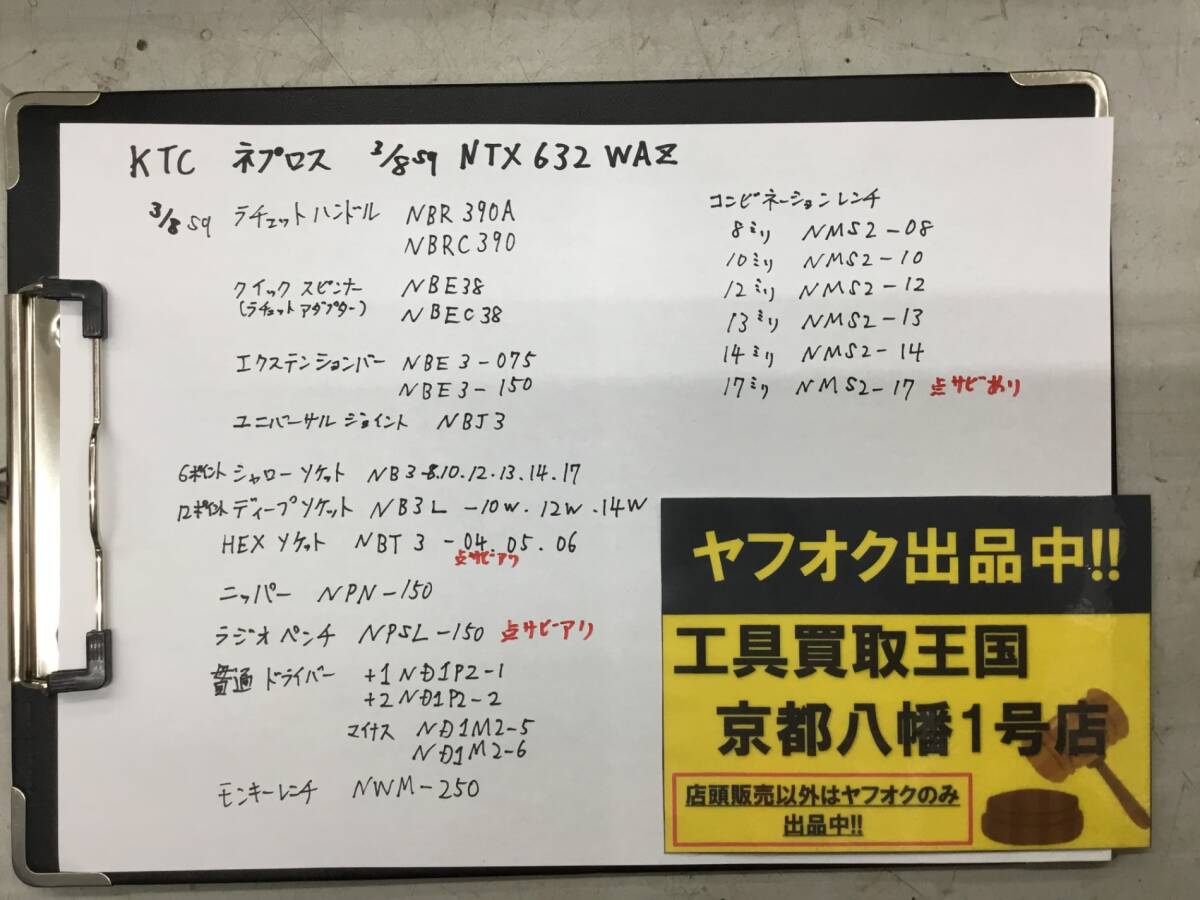 KTC ネプロス 3/8sq NTX632WAZ
3/8sq ラチェットハンドル NBR390A
NBRC390
クイックスピンナー NBE38
(ラチェットアダプター) NBEC38
エクステンションバー NBE3-075
NBE3-150
ユニバーサルジョイント NBJ3
6ポイント シャローソケット NB3-8.10.12.13.14.17
12ポイント ディープソケット NB3L-10W.12W.14W
HEXソケット NBT3-04.05.06
点サビアリ
ニッパー NPN-150
ラジオペンチ NPSL-150 点サビアリ
貫通ドライバー +1 ND1P2-1
+2 ND1P2-2
マイナス ND1M2-5
ND1M2-6
モンキーレンチ NWM-250
コンビネーションレンチ
8ミリ NMS2-08
10ミリ NMS2-10
12ミリ NMS2-12
13ミリ NMS2-13
14ミリ NMS2-14
17ミリ NMS2-17 点サビあり
ヤフオク出品中!!
工具買取王国
京都八幡1号店
店頭販売以外はヤフオクのみ
出品中!!